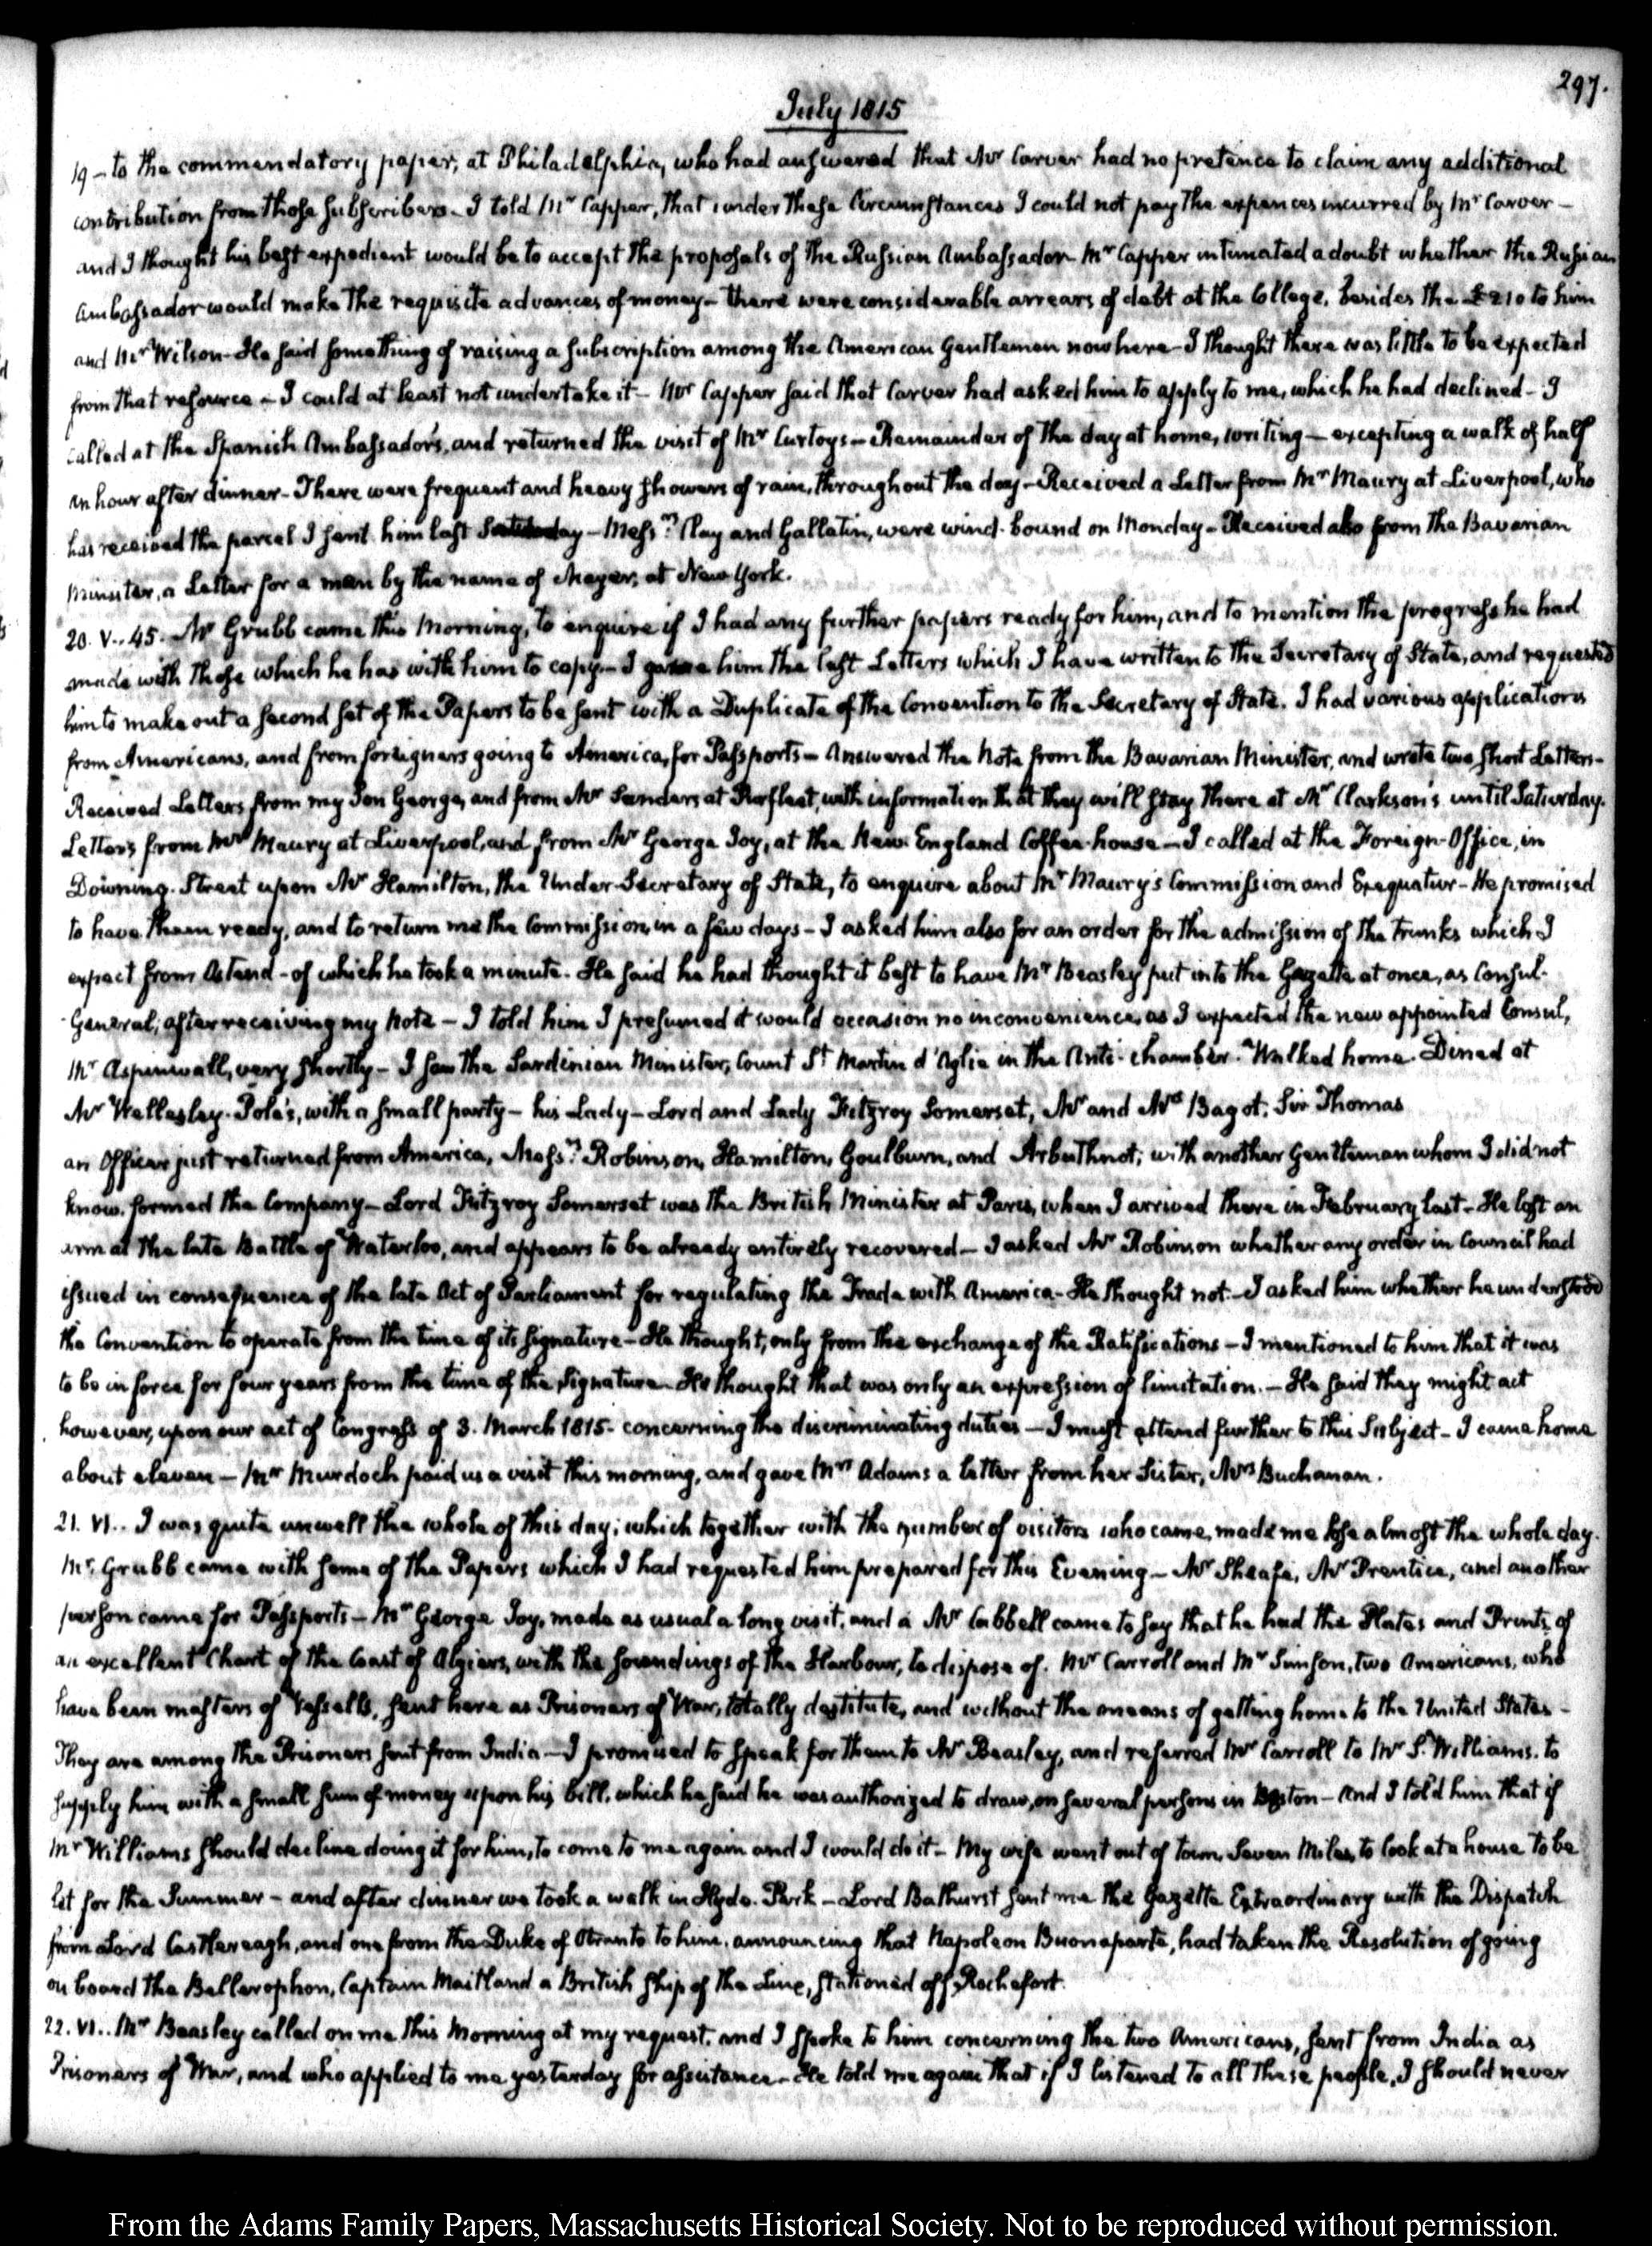 297.
July 1815
19 – to the commendatory paper, at Philadelphia, who had answered that Mr Carver had no pretence to claim any additional
contribution from those subscribers – I told Mr Capper, that under these Circumstances I could not pay the expences incurred by Mr Carver –
and I thought his best expedient would be to accept the proposals of the Russian Ambassador – Mr Capper intimated a doubt whether the Russian
Ambassador would make the requisite advances of money – there were considerable arrears of debt at the College, besides the £210 to him
and Mr Wilson – He said something of raising a subscription among the American Gentlemen now here – I thought there was little to be expected
from that resource – I could at least not undertake it – Mr Capper said that Carver had asked him to apply to me, which he had declined – I
called at the Spanish Ambassador's, and returned the visit of Mr Curtoys – Remainder of the day at home, writing – excepting a walk of half
an hour after dinner – There were frequent and heavy showers of rain, throughout the day – Received a Letter from Mr Maury at Liverpool, who
has received the parcel I sent him last Saturday – Messrs Clay and Gallatin, were wind-bound on Monday – Received also from the Bavarian
Minister, a Letter for a man by the name of Mayer, at New York.
20. V.. 45. Mr Grubb came this Morning, to enquire if I had any further papers ready for him, and to mention the progress he had
made with those which he has with him to copy – I gave him the last Letters which I have written to the Secretary of State, and requested
him to make out a second set of the Papers to be sent with a Duplicate of the Convention to the Secretary of State. I had various applications
from Americans, and from foreigners going to America, for Passports – Answered the Note from the Bavarian Minister, and wrote two short Letters –
Received Letters from my Son George, and from Mr Sanders at Purfleet, with information that they will stay there at Mr Clarkson's until Saturday.
Letters from Mr Maury at Liverpool, and from Mr George Joy, at the New England Coffee-house – I called at the Foreign-Office, in
Downing-Street upon Mr Hamilton, the Under-Secretary of State, to enquire about Mr Maury's Commission and Exequatur – He promised
to have them ready, and to return me the Commission, in a few days – I asked him also for an order for the admission of the trunks which I
expect from Ostend – of which he took a minute. He said he had thought it best to have Mr Beasley put into the Gazette at once, as Consul-
General, after receiving my Note – I told him I presumed it would occasion no inconvenience, as I expected the new appointed Consul,
Mr Aspinwall, very shortly – I saw the Sardinian Minister, Count St Martin d'Aglie in the Anti-chamber. Walked home. Dined at
Mr Wellesley-Pole's, with a small party – his Lady – Lord and Lady Fitzroy Somerset, Mr and Mrs Bagot, Sir Thomas
an Officer just returned from America, Messrs Robinson, Hamilton, Goulburn, and Arbuthnot; with another Gentleman whom I did not
know, formed the Company – Lord Fitzroy Somerset was the British Minister at Paris, when I arrived there in February last – He lost an
arm at the late Battle of Waterloo, and appears to be already entirely recovered – I asked Mr Robinson whether any order in Council had
issued in consequence of the late Act of Parliament for regulating the Trade with America – He thought not – I asked him whether he understood
the Convention to operate from the time of its signature – He thought, only from the exchange of the Ratifications – I mentioned to him that it was
to be in force for four years from the time of the Signature – He thought that was only an expression of limitation. – He said they might act
however, upon our act of Congress of 3. March 1815. concerning the discriminating duties – I must attend further to this Subject – I came home
about eleven – Mr Murdoch paid us a visit this morning, and gave Mrs Adams a letter from her Sister, Mrs Buchanan.
21. VI.. I was quite unwell the whole of this day; which together with the number of visitors who came, made me lose almost the whole day.
Mr Grubb came with some of the Papers which I had requested him prepared for this Evening – Mr Sheafe, Mr Prentice, and another
person came for Passports – Mr George Joy, made as usual a long visit, and a Mr Cabbell came to say that he had the Plates and Prints of
an excellent Chart of the Coast of Algiers, with the soundings of the Harbour, to dispose of. Mr Carroll and Mr Simson, two Americans, who
have been masters of Vessells, sent here as Prisoners of War, totally destitute, and without the means of getting home to the United States –
They are among the Prisoners sent from India – I promised to speak for them to Mr Beasley, and referred Mr Carroll to Mr S. Williams, to
supply him with a small sum of money upon his bill, which he said he was authorized to draw, on several persons in Boston – And I told him that if
Mr Williams should decline doing it for him, to come to me again and I would do it – My wife went out of town, Seven Miles, to look at a house to be
let for the Summer – and after dinner we took a walk in Hyde-Park – Lord Bathurst sent me the Gazette Extraordinary with the Dispatch
from Lord Castlereagh, and one from the Duke of Otranto to him, announcing that Napoleon Buonaparte, had taken the Resolution of going
on board the Bellerophon, Captain Maitland a British ship of the Line, stationed off Rochefort.
22. VI.. Mr Beasley called on me this Morning at my request, and I spoke to him concerning the two Americans, sent from India as
Prisoners of War, and who applied to me yesterday for assistance – He told me again that if I listened to all these people, I should never
From the Adams Family Papers, Massachusetts Historical Society. Not to be reproduced without permission.